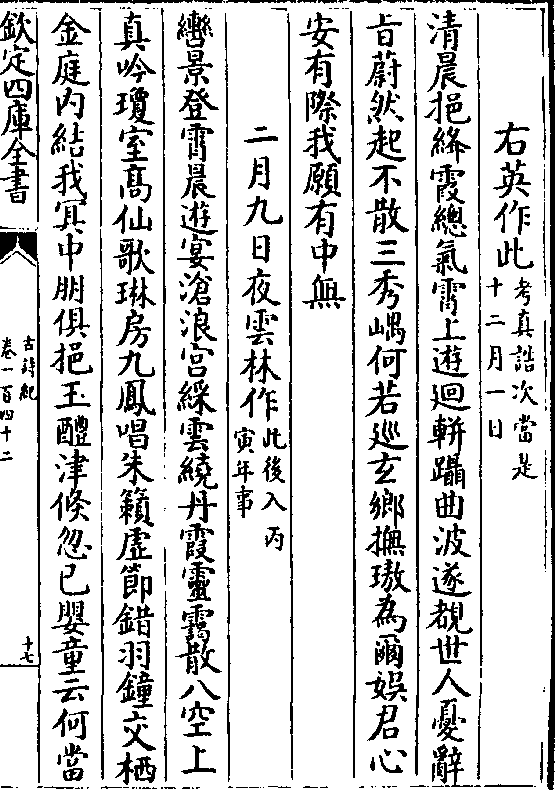 右英作此考真誥次當是十二月一日
清晨挹絳霞總氣霄上遊迴軿躡曲波遂覩世人憂辭
旨蔚然起不散三秀嵎何若巡玄鄉撫璈為爾娯君心
安有際我願有中無
二月九日夜雲林作此後入丙寅年事
轡景登霄晨遊宴滄浪宮綵雲繞丹霞靈靄散八空上
真吟瓊室高仙歌琳房九鳳唱朱籟虛節錯羽鐘交栖
金庭内結我冥中朋俱挹玉醴津倐忽已嬰童云何當
欽定四庫全書
古詩紀
卷一百四十二
十七